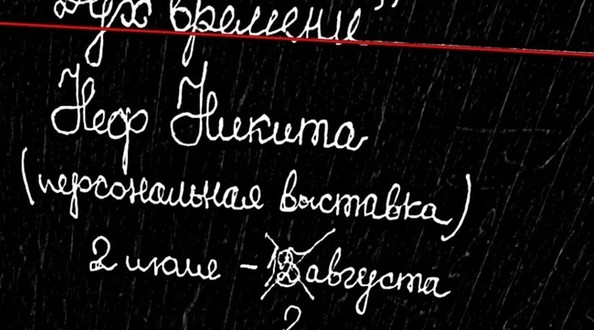 Дух времени"
Неф Никита
(персональная выставка)
2 июля – августа
2